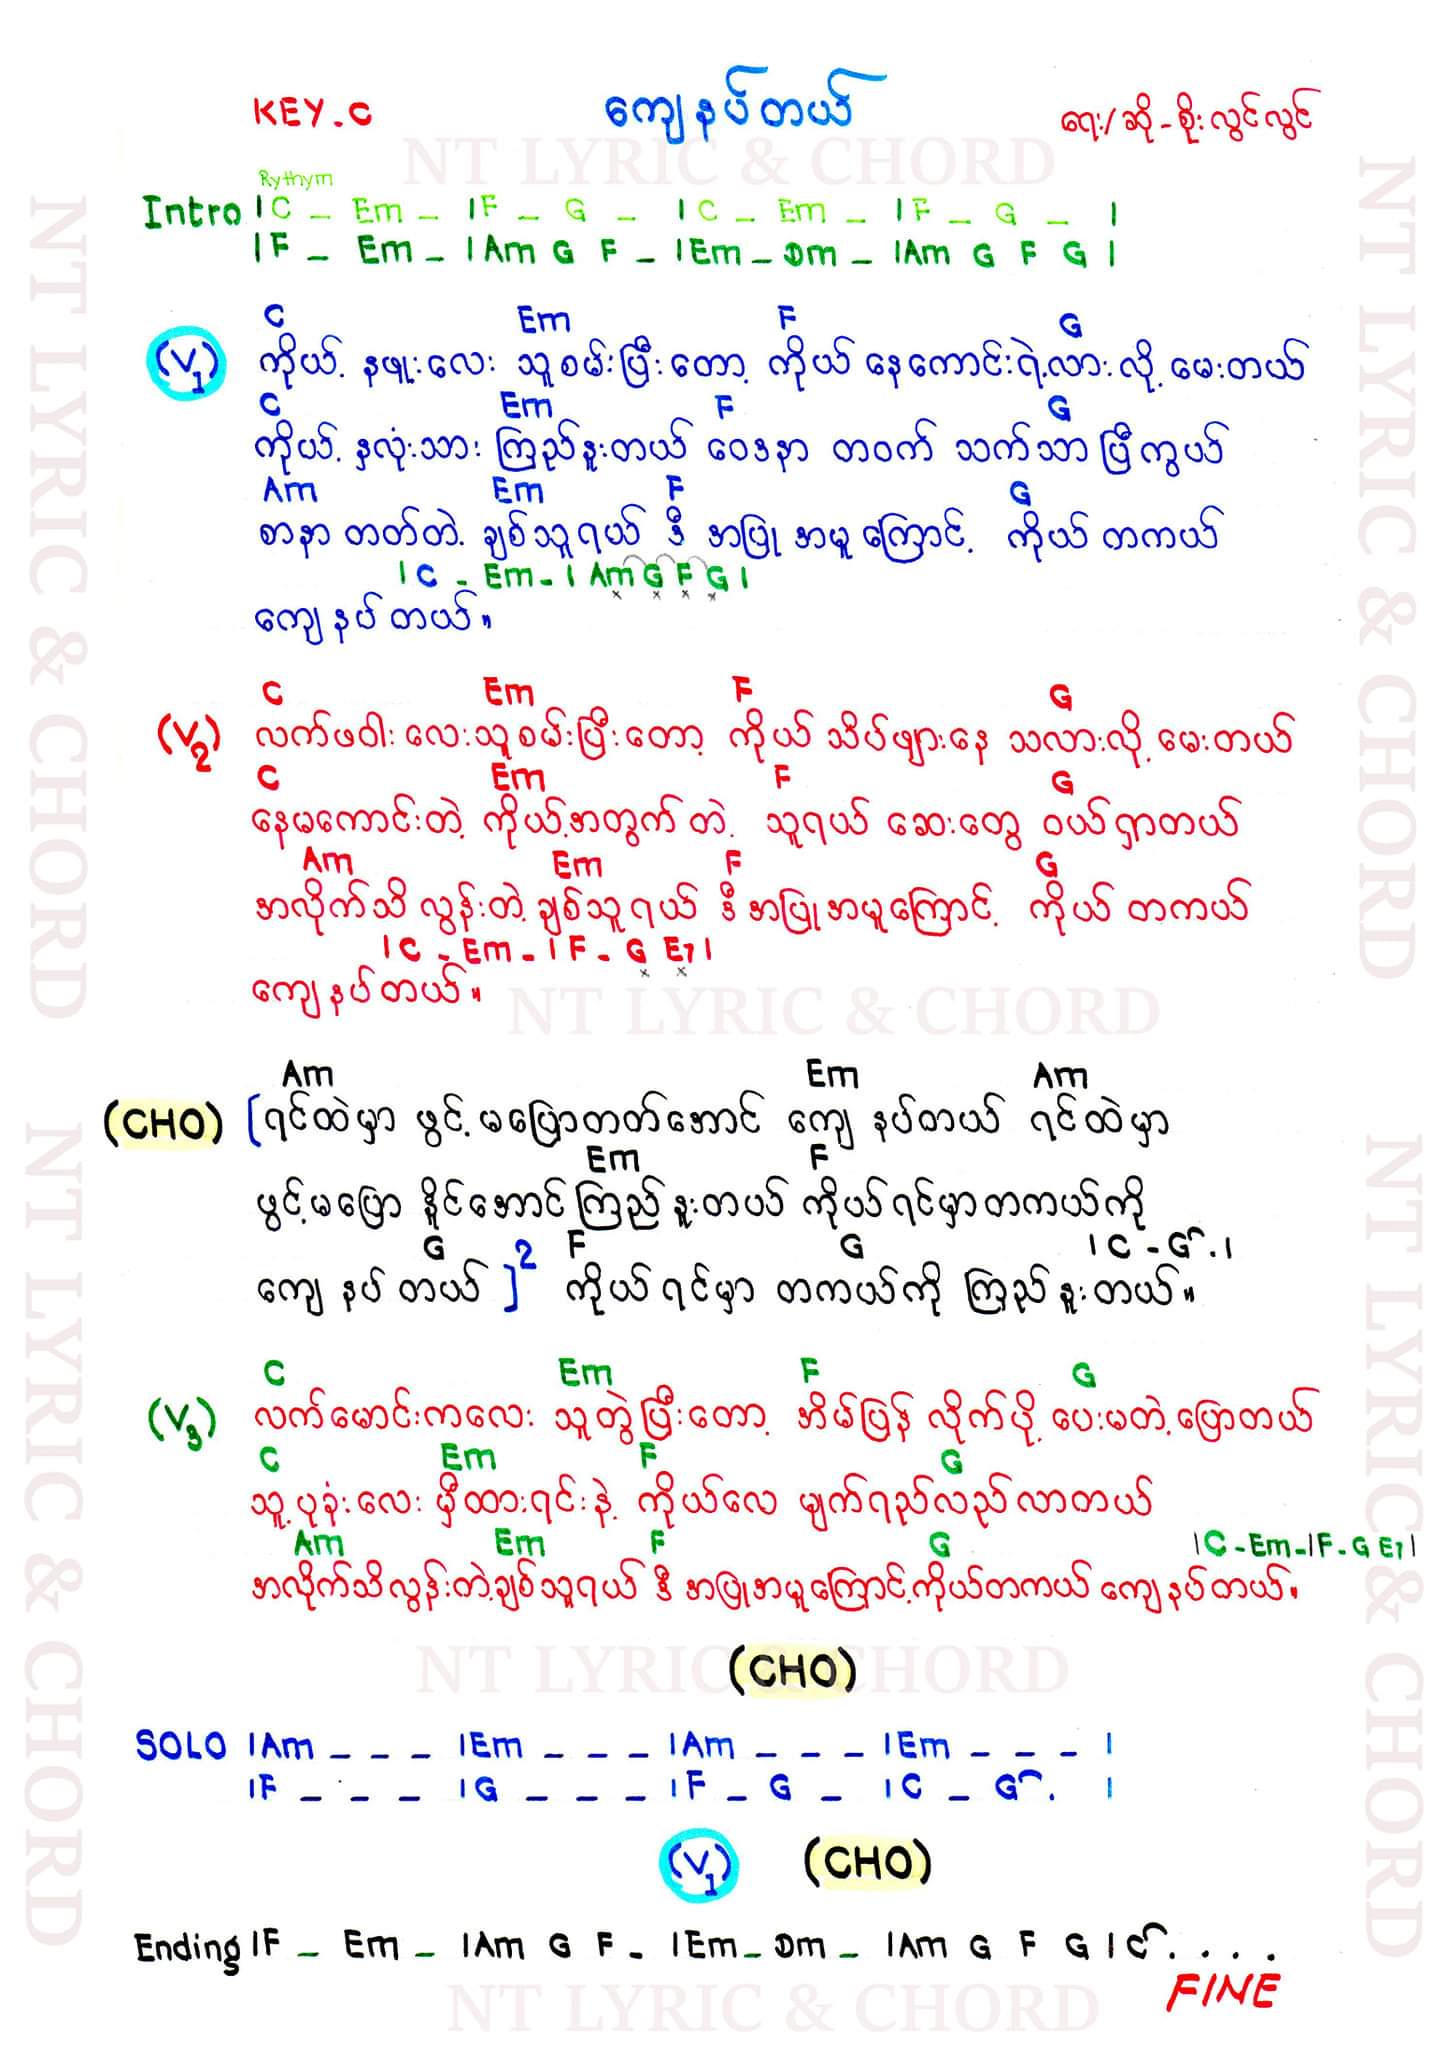 KEY.C
ကျေနပ်တယ်
ရေး/ဆို - စိုးလွင်လွင်
NT LYRIC & CHORD
Rythym
Intro | C _ Em _ | F _ G _ | C _ Em _ | F _ G _ |
| F _ Em _ | Am G F _ | Em _ Dm _ | Am G F G |
C Em F G
(V1) ကိုယ့် နဖူးလေး သူစမ်းပြီးတော့ ကိုယ် နေကောင်းရဲ့လားလို့ မေးတယ်
C Em F G
ကိုယ့် နှလုံးသား ကြည်နူးတယ် ဝေဒနာ တဝက် သက်သာပြီကွယ်
Am Em F G
စာနာ တတ်တဲ့ ချစ်သူရယ် ဒီ အပြုအမူကြောင့် ကိုယ် တကယ်
| C - Em - | Am G F G |
ကျေနပ်တယ်။
C Em F G
(V2) လက်ဖဝါးလေးသူစမ်းပြီးတော့ ကိုယ် သိပ်ဖျားနေ သလားလို့ မေးတယ်
C Em F G
နေမကောင်းတဲ့ ကိုယ့်အတွက် တဲ့ သူရယ် ဆေးတွေ ဝယ်ရှာတယ်
Am Em F G
အလိုက်သိ လွန်းတဲ့ ချစ်သူရယ် ဒီအပြုအမူကြောင့် ကိုယ် တကယ်
| C - Em - | F - G E7 |
ကျေနပ်တယ်။
NT LYRIC & CHORD
Am Em Am
(CHO) [ရင်ထဲမှာ ဖွင့်မပြောတတ်အောင် ကျေနပ်တယ် ရင်ထဲမှာ
Em F
ဖွင့်မပြော နိုင်အောင်ကြည်နူးတယ် ကိုယ်ရင်မှာတကယ်ကို
G F G | C - G . |
ကျေနပ်တယ် ]2 ကိုယ်ရင်မှာ တကယ်ကို ကြည်နူးတယ်။
C Em F G
(V3) လက်မောင်းကလေး သူတွဲပြီးတော့ အိမ်ပြန် လိုက်ပို့ ပေးမတဲ့ပြောတယ်
C Em F G
သူ့ပုခုံးလေး မှီထားရင်းနဲ့ ကိုယ်လေ မျက်ရည်လည်လာတယ်
Am Em F G | C - Em - | F - G E7 |
အလိုက်သိလွန်းတဲ့ချစ်သူရယ် ဒီ အပြုအမူကြောင့်ကိုယ်တကယ် ကျေနပ်တယ်။
NT LYRIC & CHORD
(CHO)
SOLO | Am _ _ _ | Em _ _ _ | Am _ _ _ | Em _ _ _ |
| F _ _ _ | G _ _ _ | F _ G _ | C _ G . |
(V1) (CHO)
Ending | F _ Em _ | Am G F - | Em _ Dm _ | Am G F G | C . . . .
FINE
NT LYRIC & CHORD
NT LYRIC & CHORD
NT LYRIC & CHORD
NT LYRIC & CHORD
NT LYRIC & CHORD